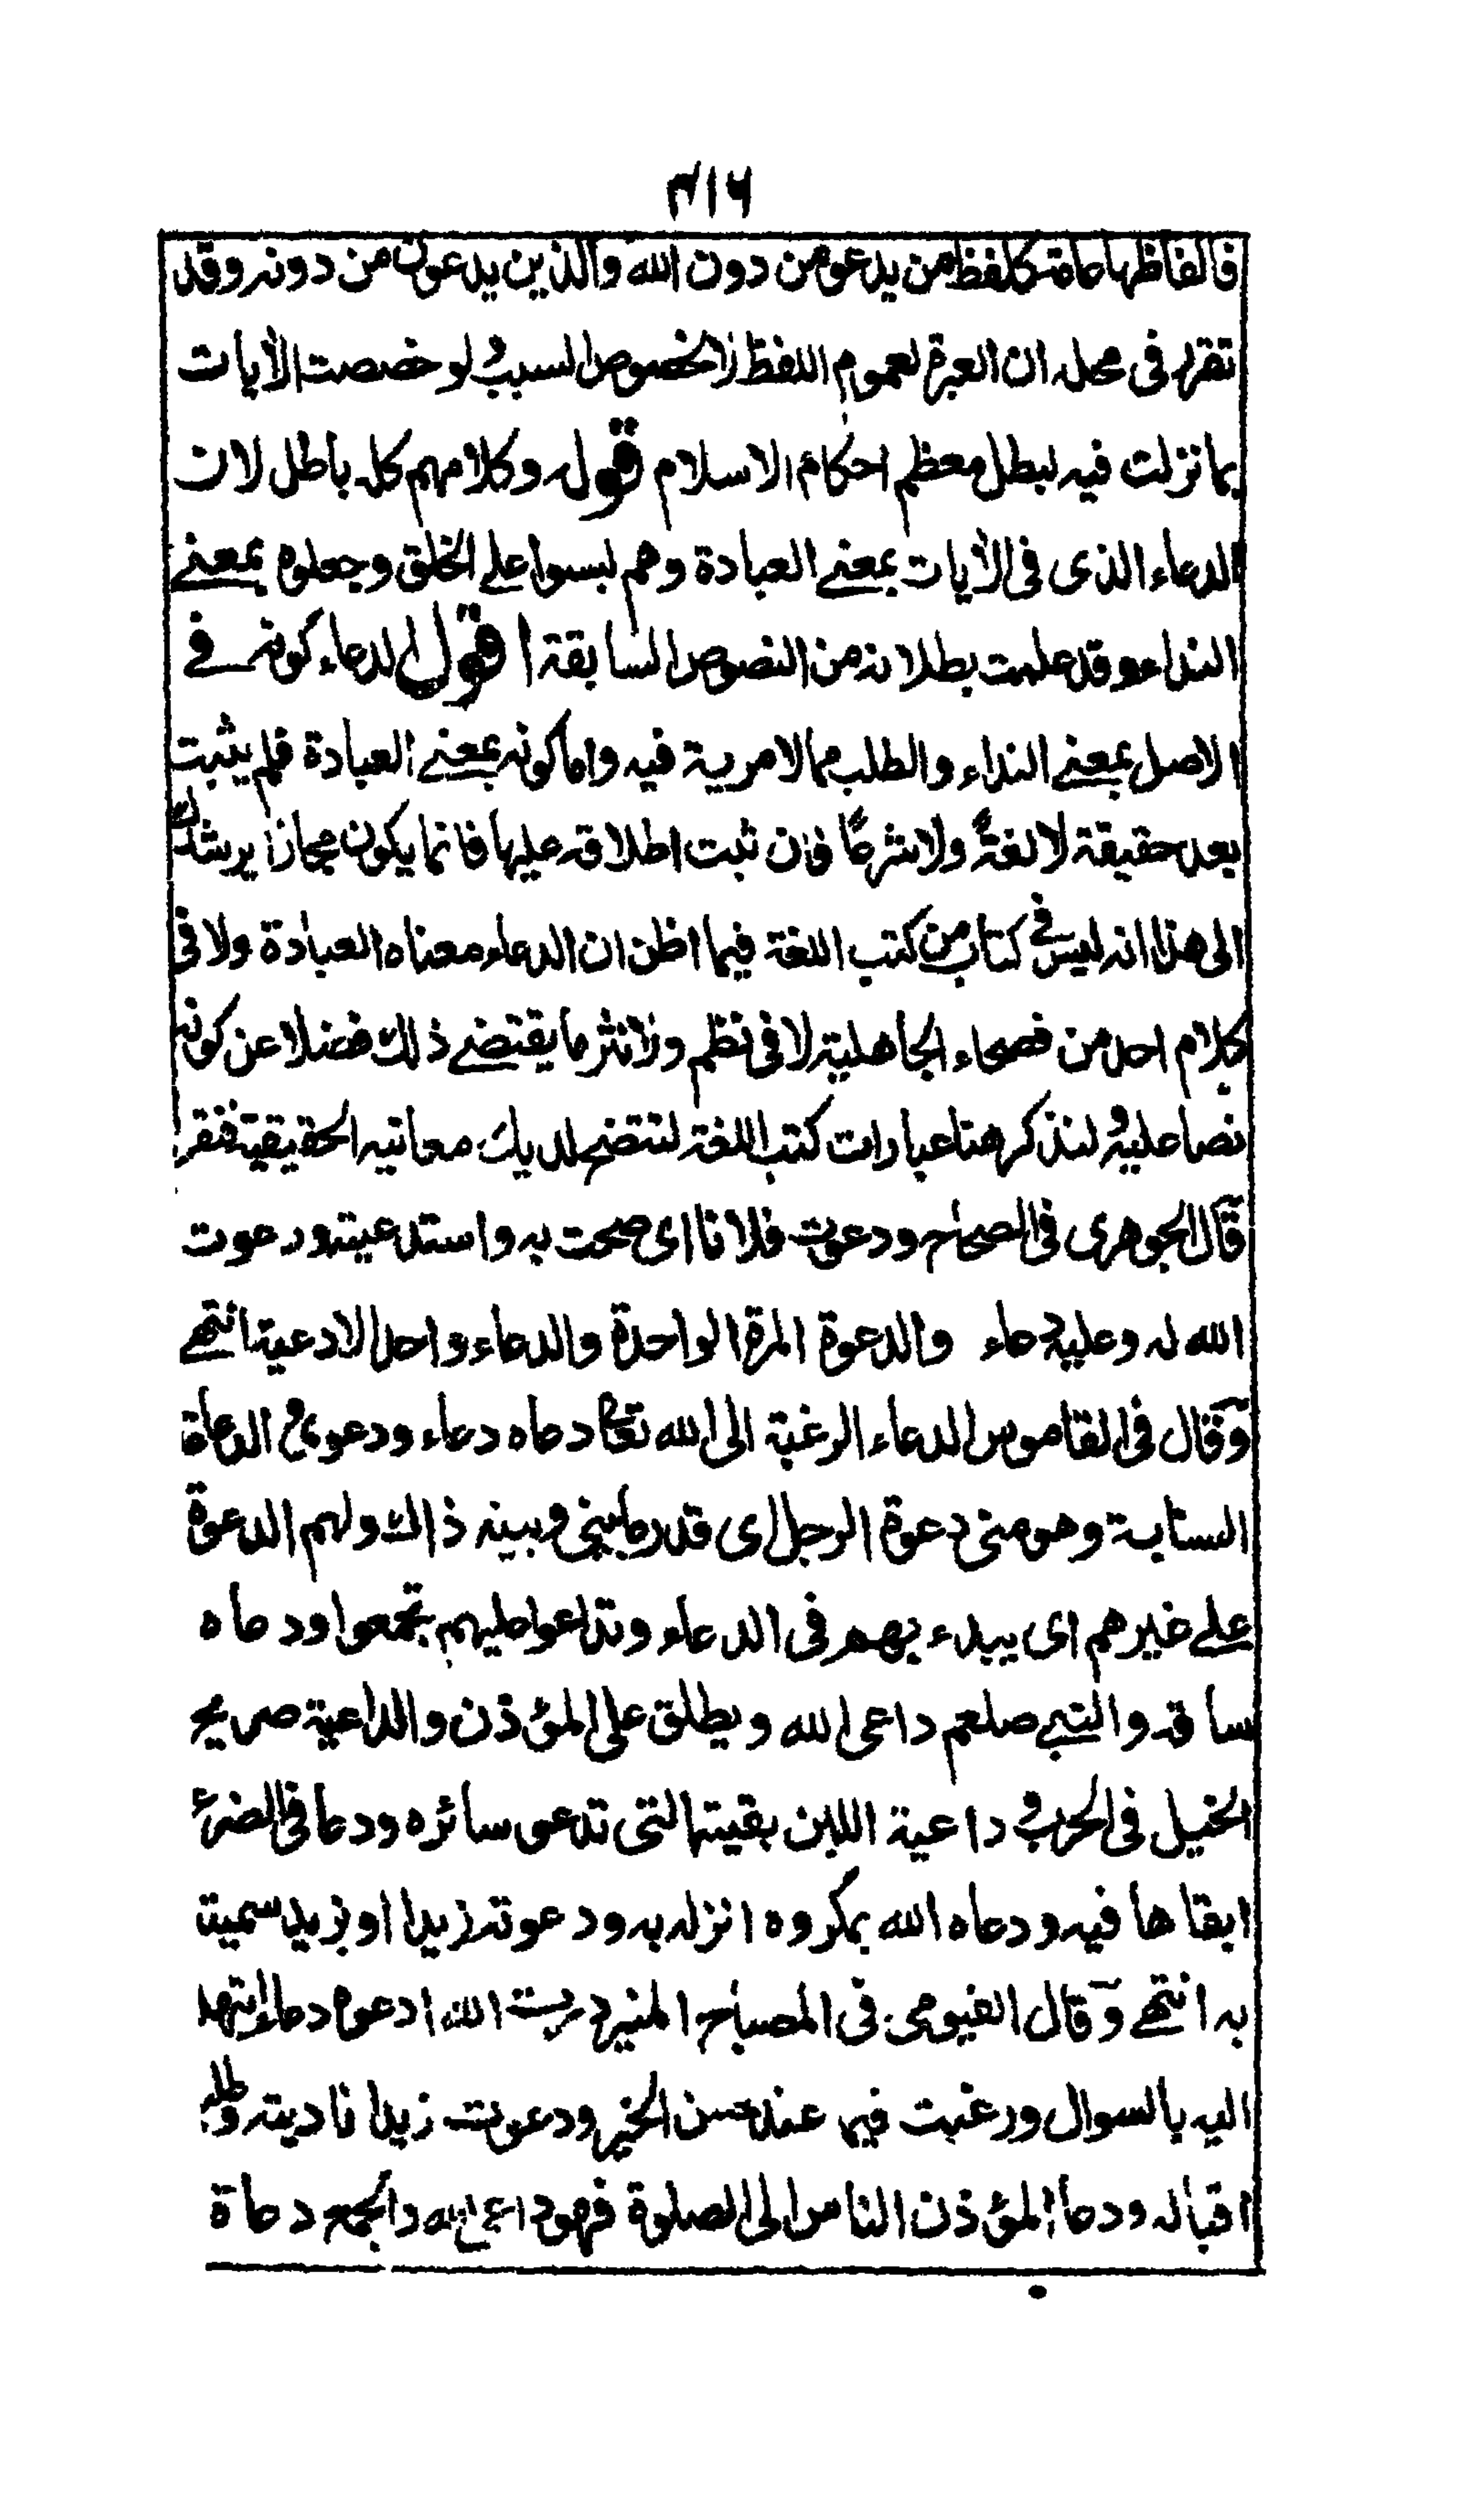 ٣١٦
فالفاظها عامة كلفظ من يدعو من دون الله والذين يدعون من دونه وقد
تقرر فى محله ان العبرة لعموم اللفظ لا لخصوص السبب ولو خصصت الآيات
بما نزلت فيه لبطل معظم احكام الاسلام قوله وكلامهم كله باطل لان
الدعاء الذى فى الآيات بمعنى العبادة وهم لبسوا على الخلق وجعلوه بمعنى
النداء وقد علمت بطلانه من النصوص السابقة اقول الدعاء كونه فى
الاصل بمعنى النداء والطلب مما لا مرية فيه واما كونه بمعنى العبادة فلم يثبت
بعد حقيقة لا لغةً ولا شرعًا فان ثبت اطلاقه عليها فانما يكون مجازا يرشدك
الى هذا انه ليس فى كتاب من كتب اللغة فيما اظن ان الدعاء معناه العبادة ولا فى
كلام احد من فصحاء الجاهلية لا فى نظم ولا نثر ما يقتضى ذلك فضلا عن كونه
نصا عليه ولنذكر هنا عبارات كتب اللغة لتتضح لديك معانيه الحقيقية فنقول
قال الجوهرى فى الصحاح ودعوت فلانا اى صحت به واستدعيته ودعوت
الله له وعليه دعاء والدعوة المرة الواحدة والدعاء واحد الادعية انتهى
وقال فى القاموس الدعاء الرغبة الى الله تعالى دعاه دعاء ودعوى والدعاءة
السبابة وهو منى دعوة الرجل اى قدر ما بينى وبينه ذاك ولهم الدعوة
على غيرهم اى يبدء بهم فى الدعاء وتداعوا عليهم تجمعوا ودعاه
ساقه والنبى صلعم داعى الله ويطلق على المؤذن والداعية صريخ
الخيل فى الحرب وداعية اللبن بقيتها التى تدعو سائره ودعا فى الضرع
ابقاها فيه ودعاه الله بمكروه انزله به ودعوته زيدا او بزيد سميته
به انتهى وقال الفيومى فى المصباح المنير دعوت الله ادعوه دعاء ابتهلت
اليه بالسوال ورغبت فيما عنده من الخير ودعوت زيدا ناديته وطلبت
اقباله ودعا المؤذن الناس الى الصلوة فهو داعى الله والجمع دعاة